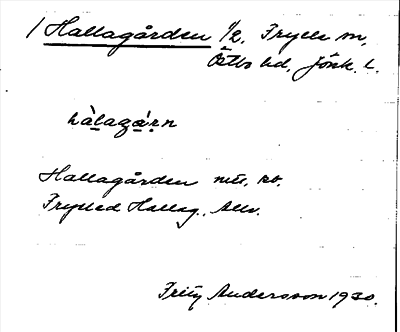 / Hallagården 1/2, Fryele sn,
Östbo hd, Jönk. l.
hàlagá̱ṛn
Hallagården mtl, kb.
Fryeled Hallag., Allv.
Fritz Andersson 1930.